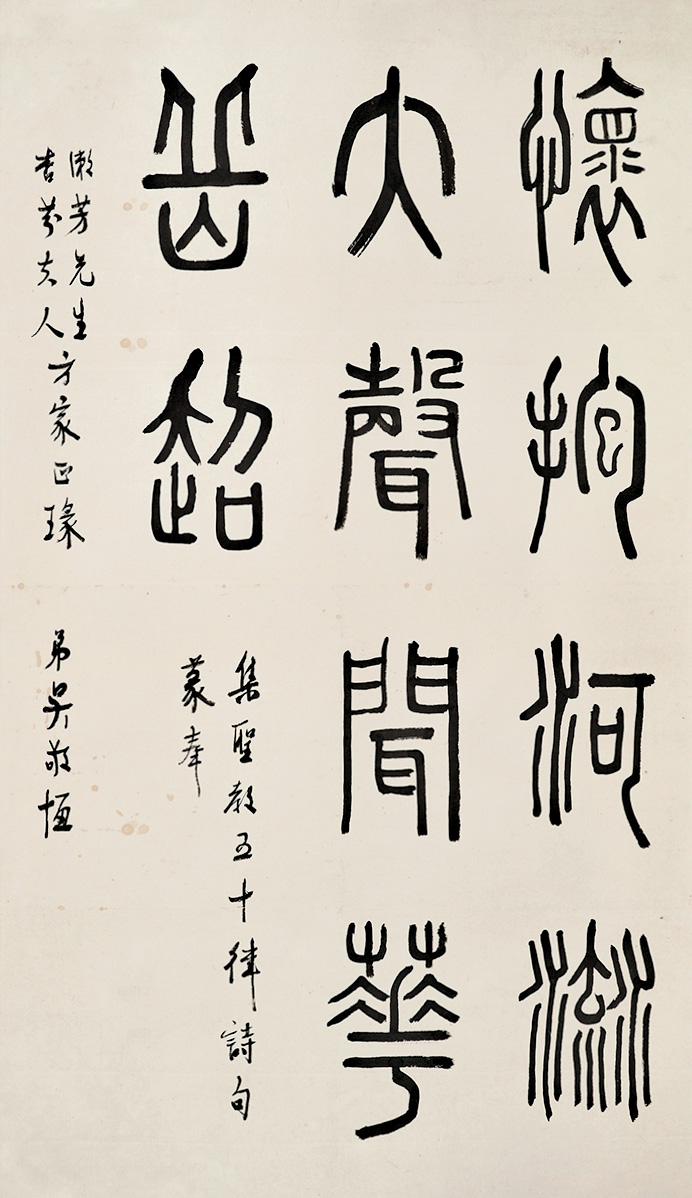 懷抱河流
大聲聞華
岳超
集聖教五十律詩句
篆奉
漱芳先生
杏芬夫人
方家正瑑
弟吳敬恆